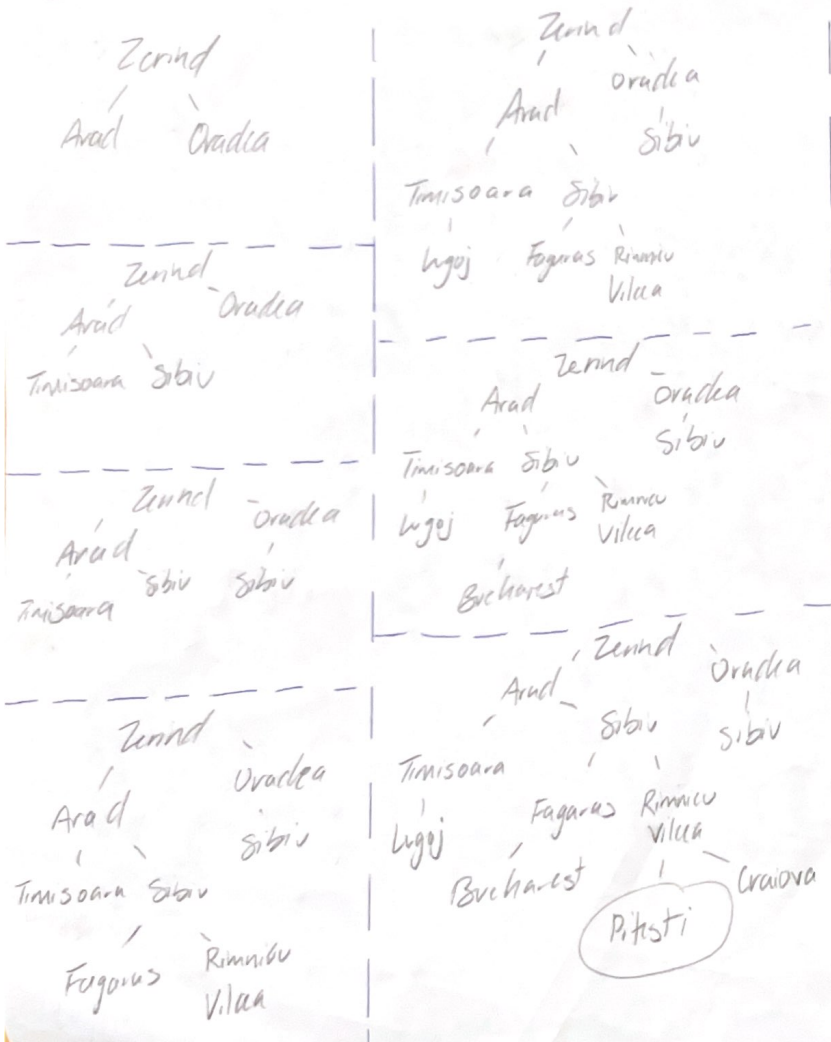 Zerind
Arad Oradea
Zerind
Oradea
Arad
Timisoara Sibiu
Zerind
Oradea
Arad
Sibiu Sibiu
Timisoara
Zerind
Oradea
Arad
Sibiu
Timisoara Sibiu
Fagaras Rimnicu
Vilcea
Zerind
Oradea
Arad
Sibiu
Timisoara Sibiu
Lugoj Fagaras Rimnicu
Vilcea
Zerind
Arad Oradea
Sibiu
Timisoara Sibiu
Lugoj Fagaras Rimnicu
Vilcea
Bucharest
Zerind
Arad Oradea
Sibiu Sibiu
Timisoara
Fagaras Rimnicu
Lugoj Vilcea
Bucharest Craiova
Pitesti